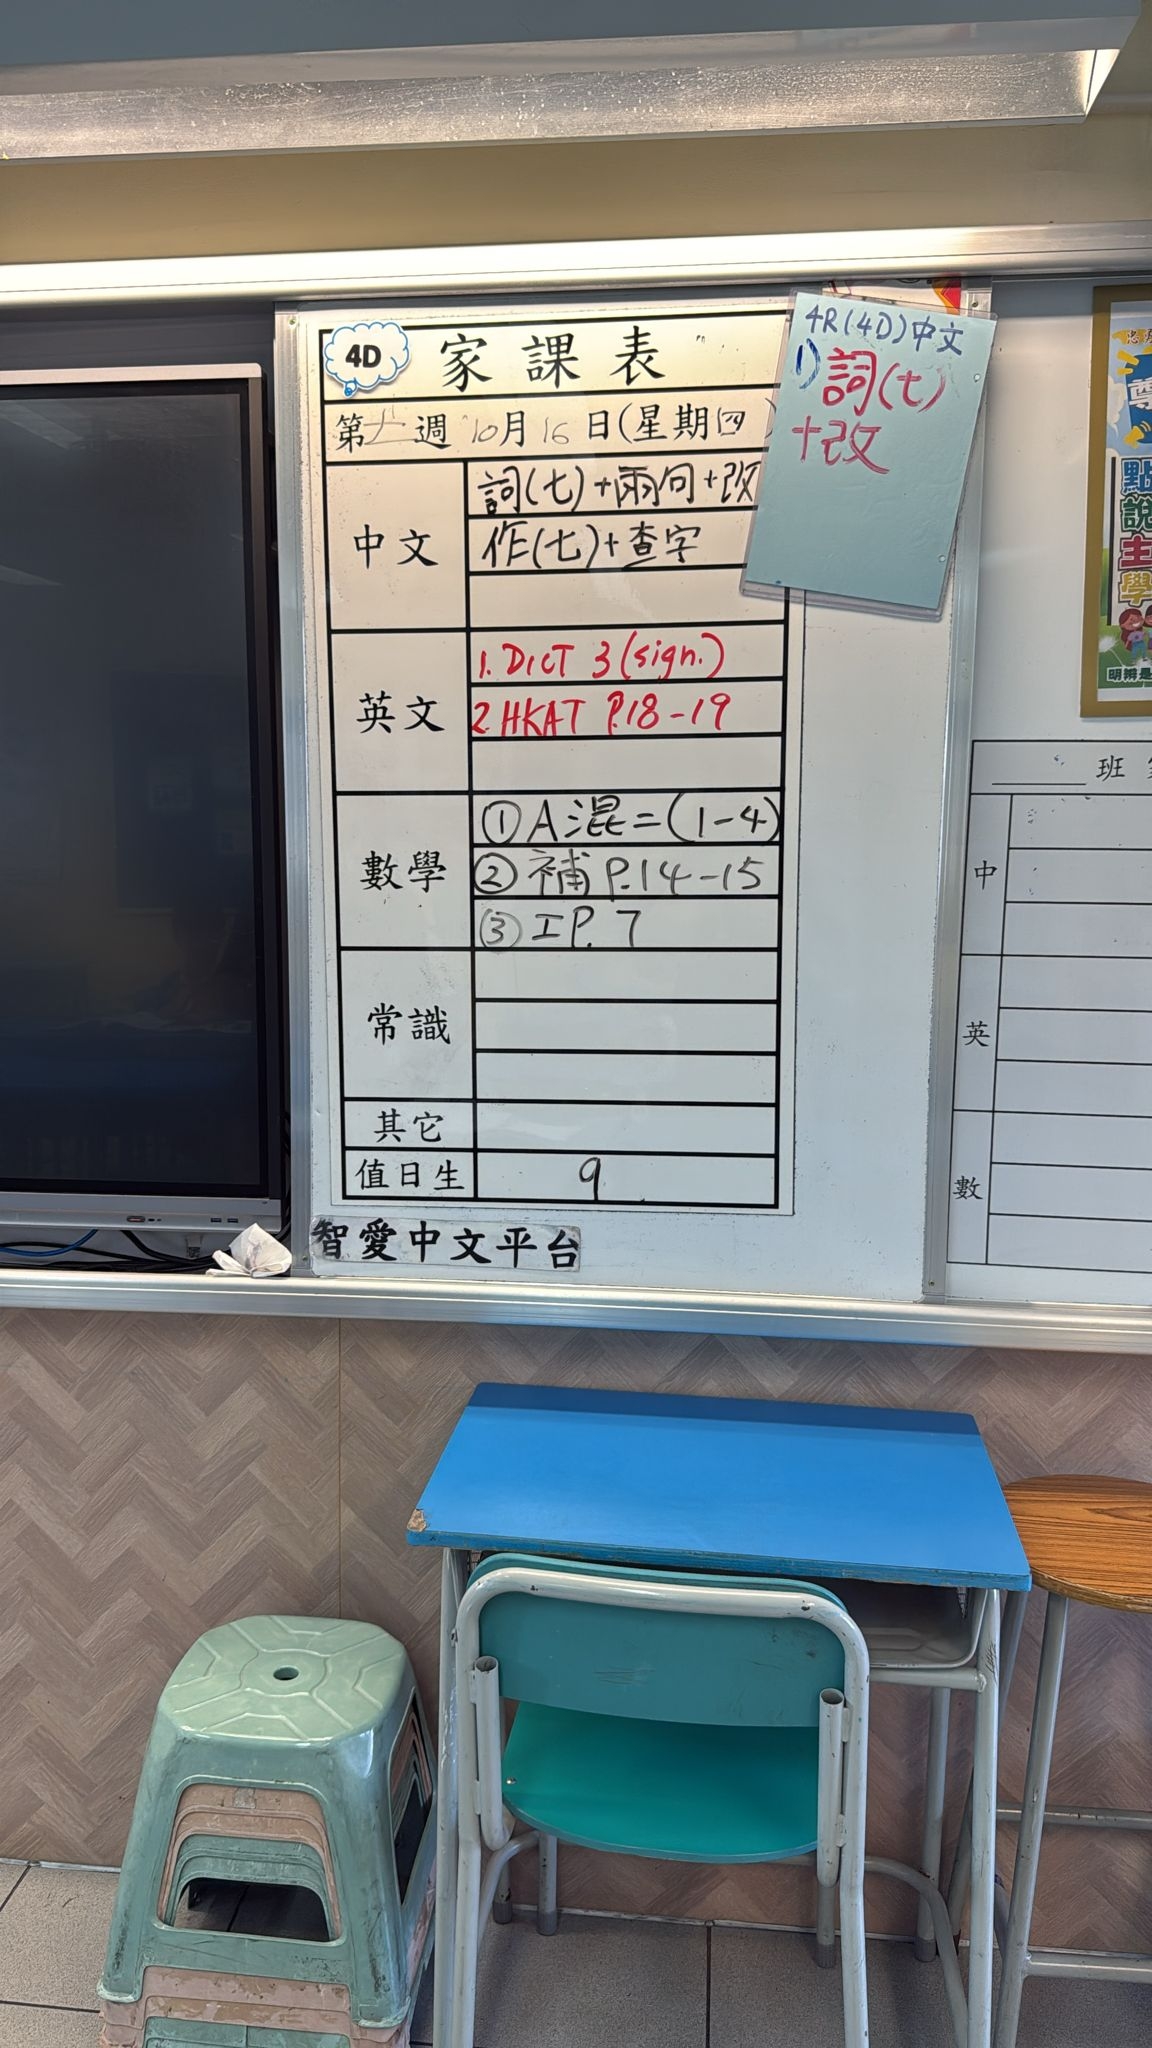 4D
家課表
第六週 10月16日(星期四)
中文
詞(七)+兩句+改
作(七)+查字
英文
1. DICT 3 (sign.)
2. HKAT P.18-19
數學
① A混=(1-4)
② 補 P.14-15
③ 工P. 7
常識
其它
值日生
9
智愛中文平台
4R(4D)中文
1) 詞(七)
+改
班
中
英
數
尊
點
說
主
學